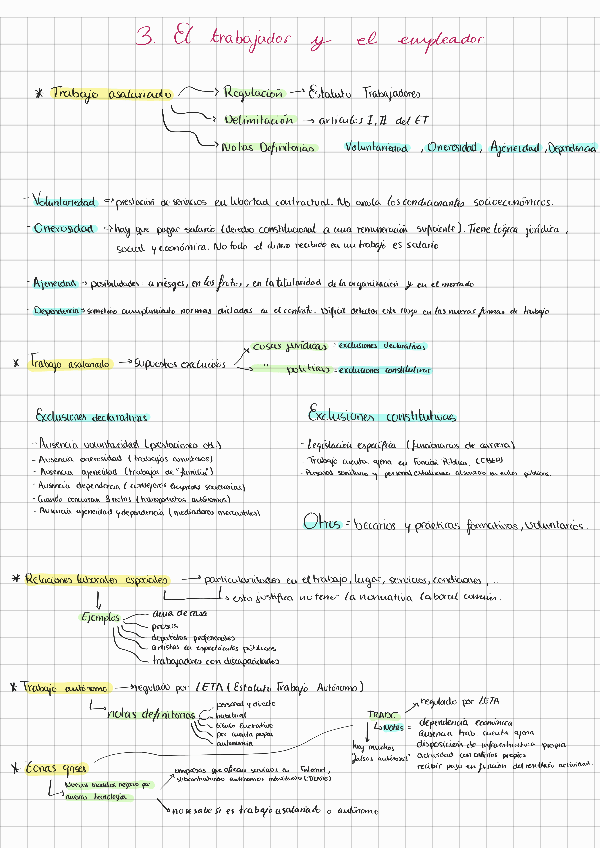 3. El trabajador y el empleador
* Trabajo asalariado → Regulación → Estatuto Trabajadores
→ Delimitación → artículos I, II del ET
→ Notas Definitorias Voluntariedad, Onerosidad, Ajeneidad, Dependencia
- Voluntariedad → prestación de servicios en libertad contractual. No anula los condicionantes socioeconómicos.
- Onerosidad → hay que pagar salario (derecho constitucional a una remuneración suficiente). Tiene lógica jurídica,
social y económica. No todo el dinero recibido en un trabajo es salario
- Ajeneidad → posibilidades a riesgos, en los frutos, en la titularidad de la organización y en el mercado
- Dependencia → cumplimiento normas dictadas en el contrato. Difícil detectar este rasgo en las nuevas formas de trabajo
* Trabajo asalariado → supuestos excluidos → causas jurídicas: exclusiones declarativas
→ " políticas: exclusiones constitutivas
Exclusiones declarativas
- Ausencia voluntariedad (prestaciones ob.)
- Ausencia onerosidad (trabajos amistosos)
- Ausencia ajeneidad (trabajos de "familia")
- Ausencia dependencia (consejeros empresas societarias)
- Cuando concurran 3 notas (transportistas autónomos)
- Ausencia ajeneidad y dependencia (mediadores mercantiles)
Exclusiones constitutivas
- Legislación específica (funcionarios de carrera)
Trabajo cuenta ajena en Función Pública (EBEP)
- Personal sanitario y personal estatutario
Otros = becarios y prácticas formativas, voluntarios.
* Relaciones laborales especiales → particularidades en el trabajo, lugar, servicios, condiciones, ...
→ esto justifica no tener la normativa laboral común.
Ejemplos
ama de casa
presos
deportistas profesionales
artistas en espectáculos públicos
trabajadores con discapacidades
* Trabajo autónomo → regulado por LETA (Estatuto Trabajo Autónomo)
→ notas definitorias
personal y directo
habitual
título lucrativo
por cuenta propia
autonomía
TRADE → regulado por LETA
→ Notas = dependencia económica
ausencia trab. cuenta ajena
disposición de infraestructura propia
actividad con criterios propios
recibir pago en función del resultado actividad.
hay muchos
"falsos autónomos"
* Zonas grises
→ Nuevos modelos negocio por
nuevas tecnologías
→ empresas que ofrecen servicios en Internet,
subcontratando autónomos individuales
→ no se sabe si es trabajo asalariado o autónomo